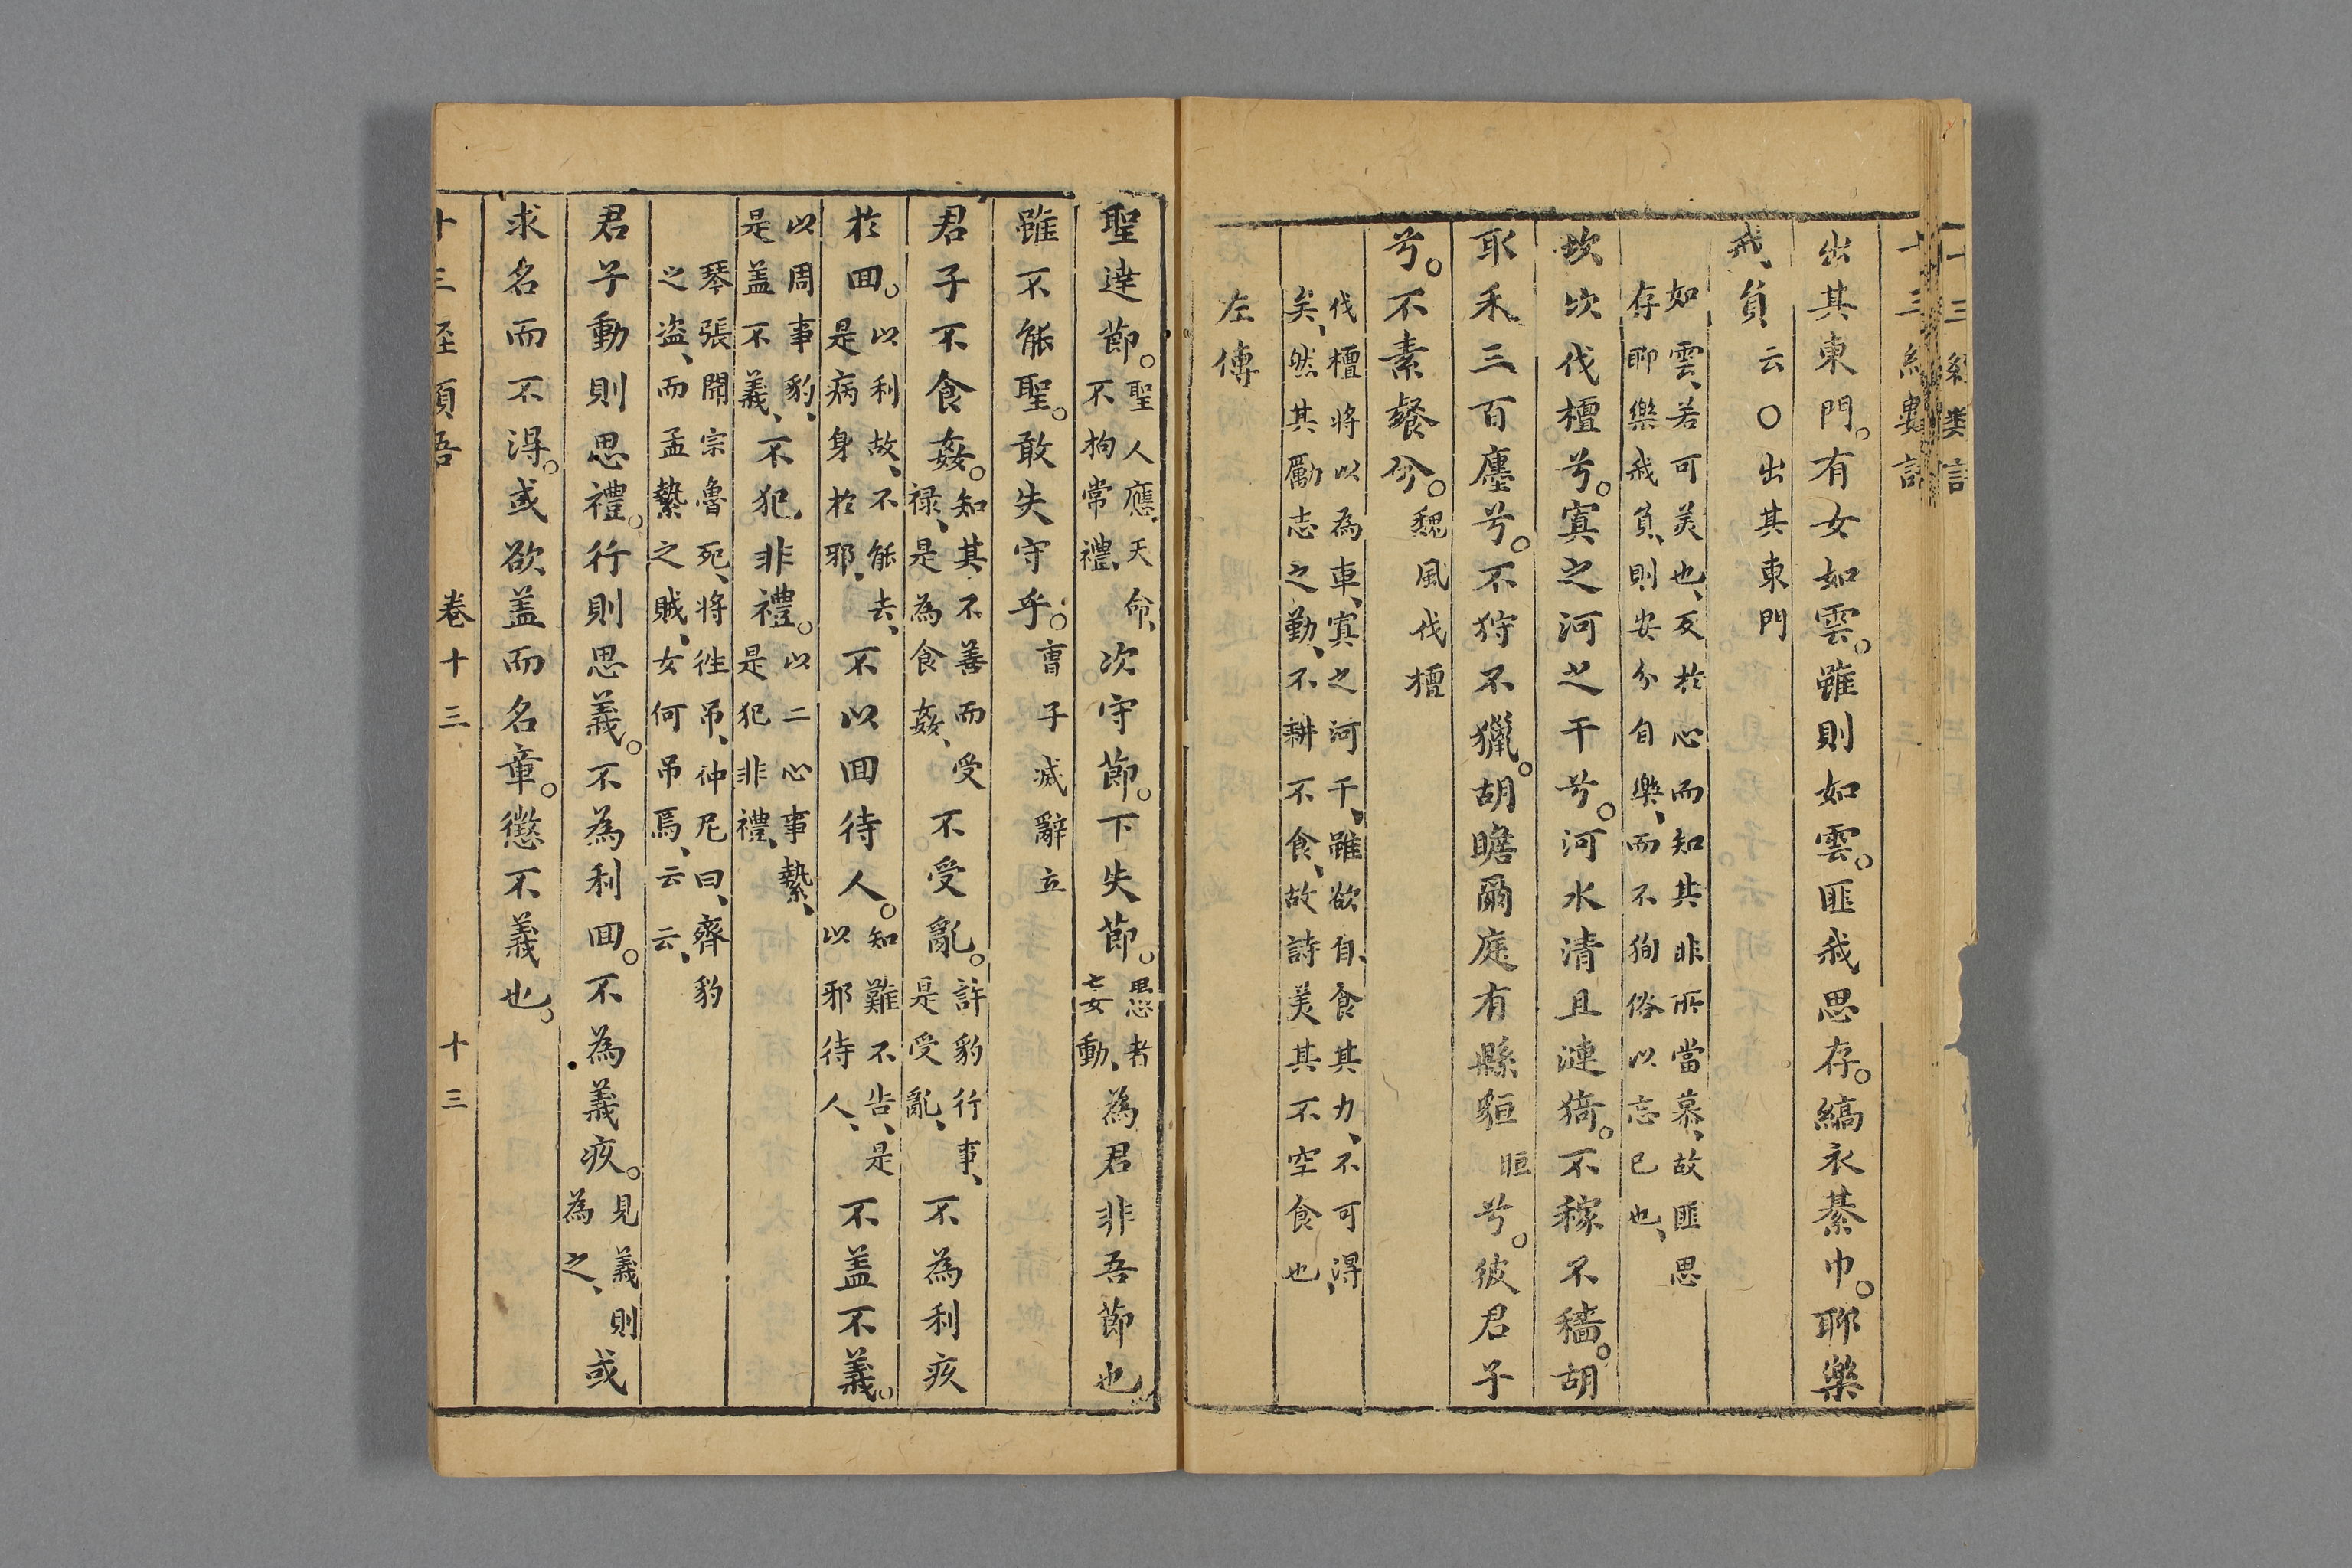 十三經類語
出其東門。有女如雲。雖則如雲。匪我思存。縞衣綦巾。聊樂
我負云〇出其東門
如雲、若可美也、反於心而知其非所當慕、故匪思
存聊樂我負、則安分自樂、而不狥俗以忘已也、
坎坎伐檀兮。寘之河之干兮。河水清且漣猗。不稼不穡。胡
取禾三百廛兮。不狩不獵。胡瞻爾庭有縣貆貆兮。彼君子
兮。不素餐兮。魏風伐檀
伐檀將以為車、寘之河干、雖欲自食其力、不可得、
矣、然其勵志之勤、不耕不食、故詩美其不空食也
左傳
聖達節。聖人應天命、不拘常禮、次守節。下失節。愚者妄動、為君非吾節也
雖不能聖。敢失守乎。曹子減辭立
君子不食姦。知其不善而受祿、是為食姦、不受亂。許豹行事、是受亂、不為利疚
於回。以利故、不能去、是病身於邪、不以回待人。知難不告、是以邪待人、不盖不義。
以周事豹、是盖不義、不犯非禮。以二心事縶、是犯非禮、
琴張聞宗魯死、將徃吊、仲尼曰、齊豹
之盗、而孟縶之賊、女何吊焉、云云、
君子動則思禮。行則思義。不為利回。不為義疚。見義則為之、或
求名而不得。或欲盖而名章。懲不義也。
十三經類語 卷十三 十三